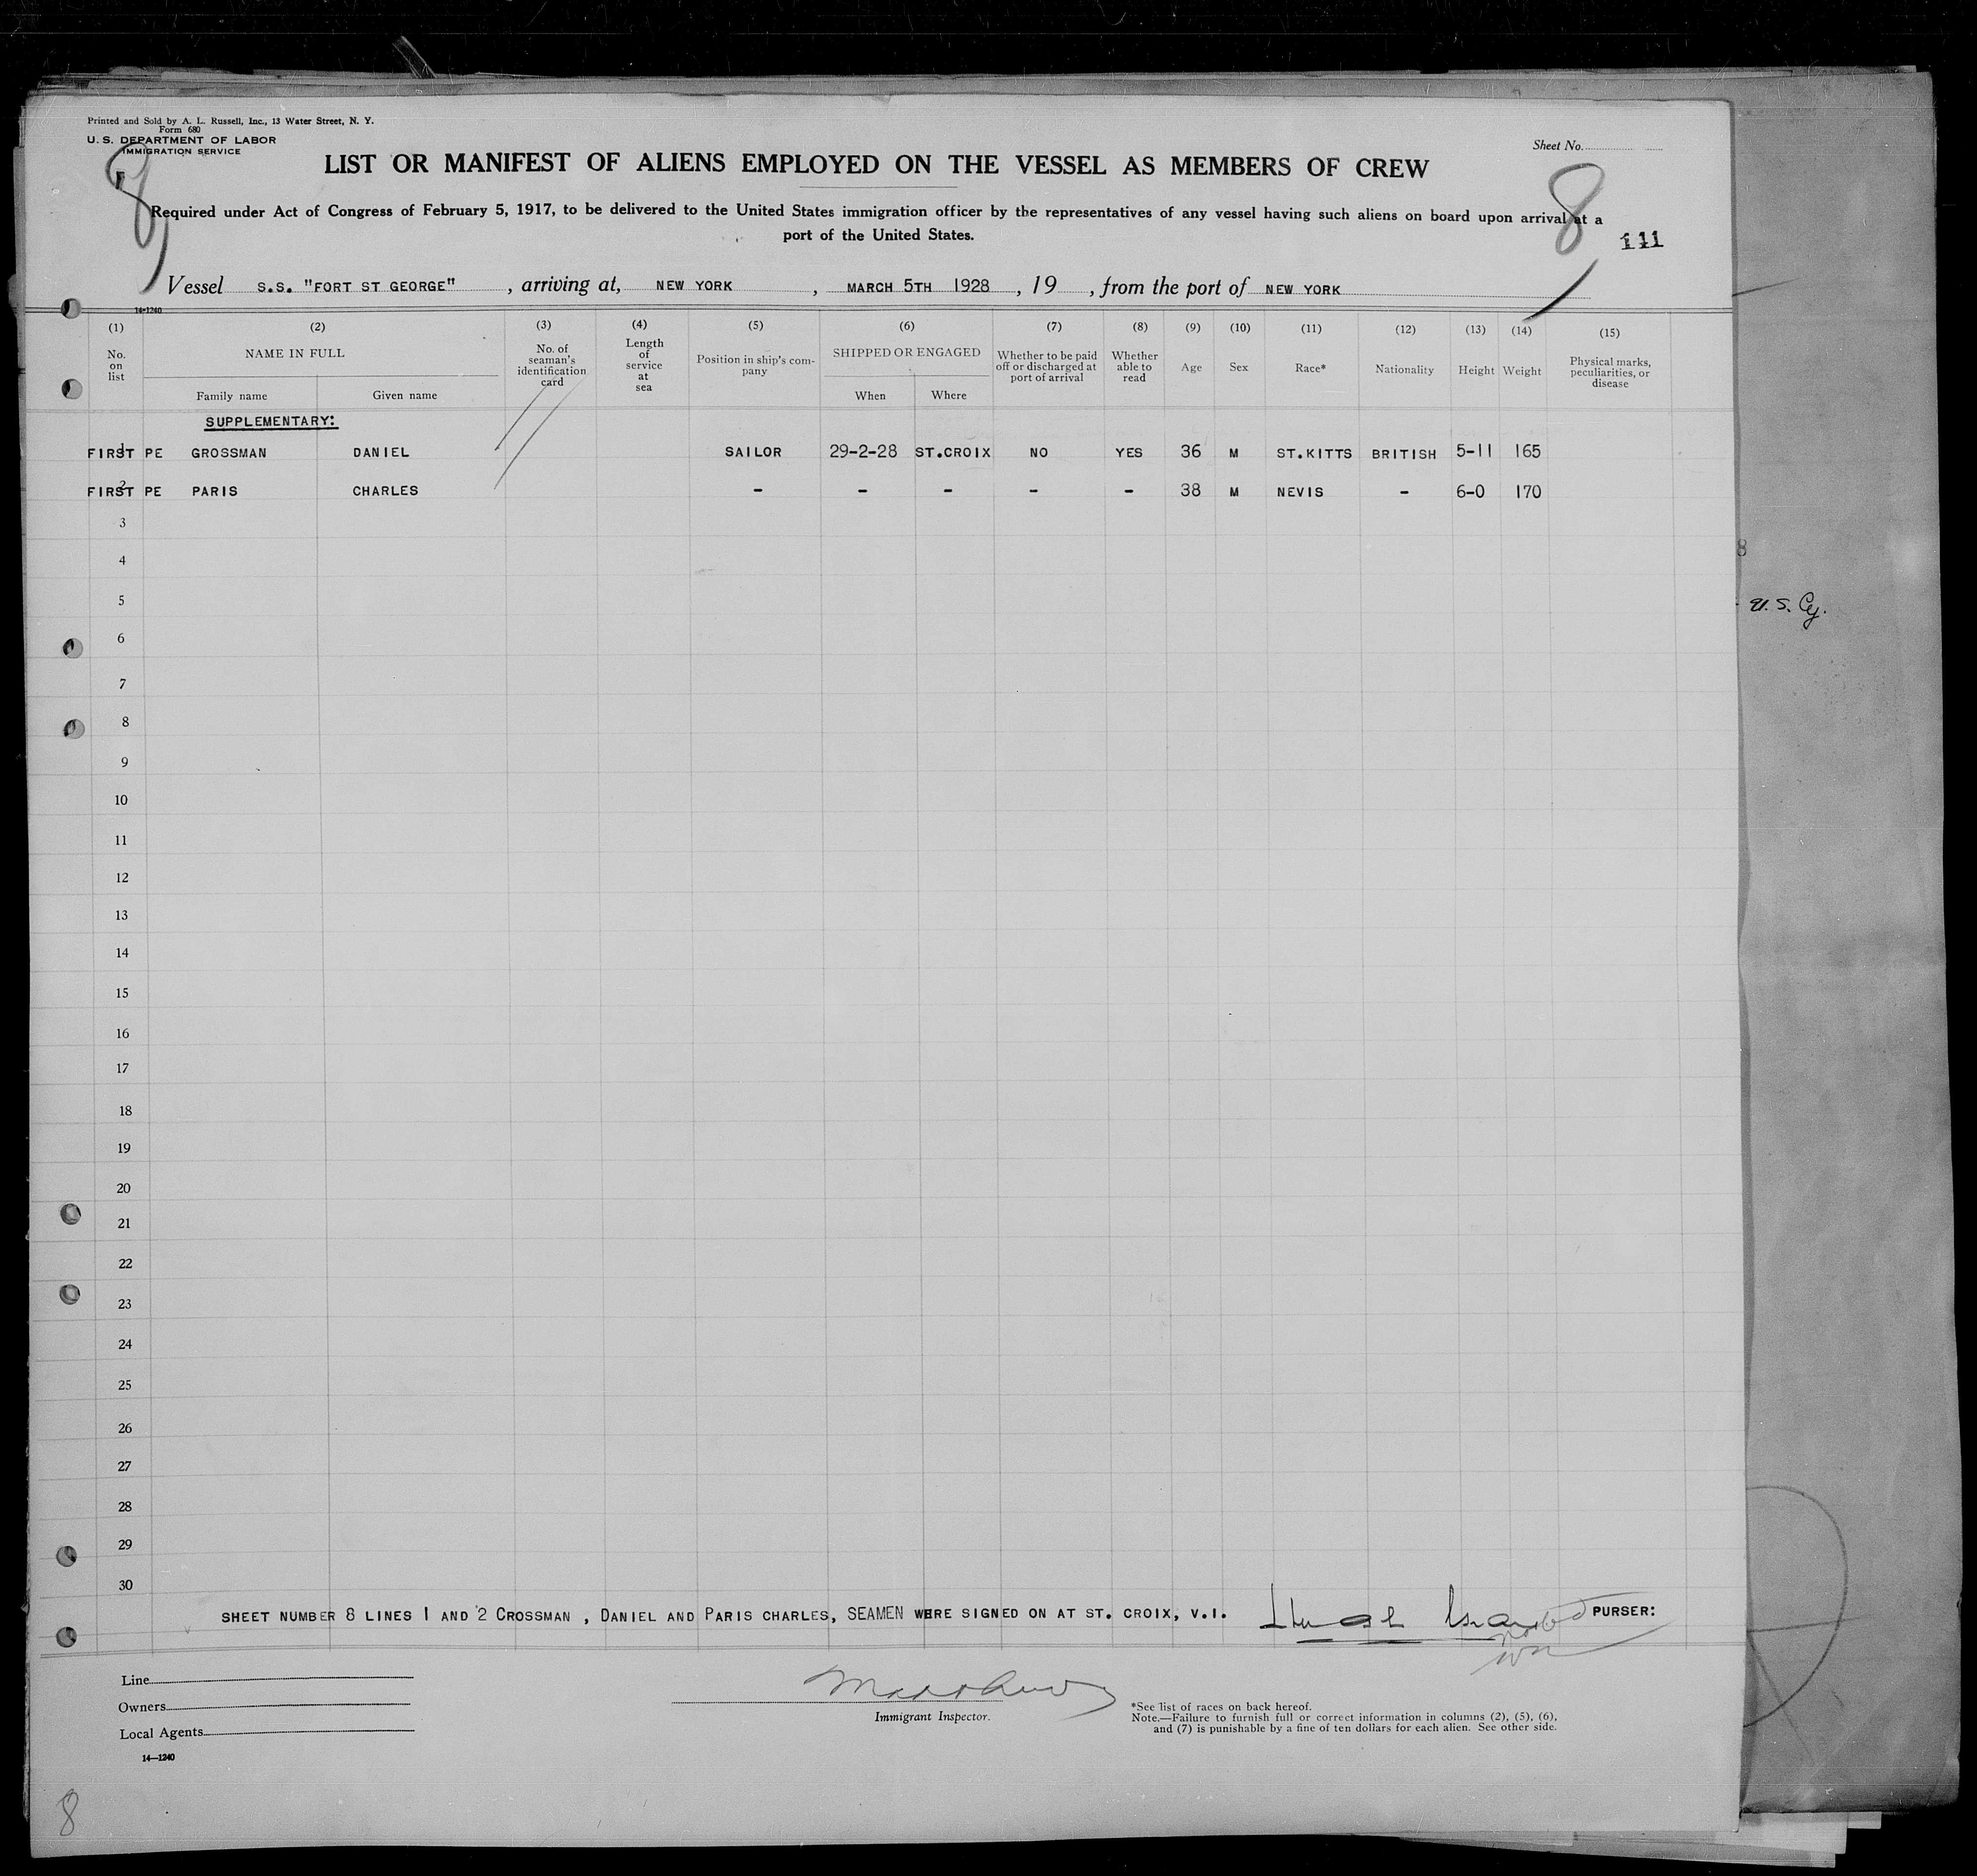 Printed and Sold by A. L. Russell, Inc., 13 Water Street, N. Y.
Form 680
U. S. DEPARTMENT OF LABOR
IMMIGRATION SERVICE
Sheet No.
LIST OR MANIFEST OF ALIENS EMPLOYED ON THE VESSEL AS MEMBERS OF CREW
8
8
Required under Act of Congress of February 5, 1917, to be delivered to the United States immigration officer by the representatives of any vessel having such aliens on board upon arrival at a
port of the United States.
111
Vessel S.S. "FORT ST GEORGE" , arriving at, NEW YORK , MARCH 5TH 1928 , 19 , from the port of NEW YORK
14-1240
(1) (2) (3) (4) (5) (6) (7) (8) (9) (10) (11) (12) (13) (14) (15)
No. on list
NAME IN FULL
Family name
Given name
No. of seaman's identification card
Length of service at sea
Position in ship's company
SHIPPED OR ENGAGED
When
Where
Whether to be paid off or discharged at port of arrival
Whether able to read
Age
Sex
Race*
Nationality
Height
Weight
Physical marks, peculiarities, or disease
SUPPLEMENTARY:
1 FIRST PE GROSSMAN DANIEL SAILOR 29-2-28 ST.CROIX NO YES 36 M ST.KITTS BRITISH 5-11 165
2 FIRST PE PARIS CHARLES - - - - - 38 M NEVIS - 6-0 170
3
4
8
5
U.S. Cy.
6
7
8
9
10
11
12
13
14
15
16
17
18
19
20
21
22
23
24
25
26
27
28
29
30
SHEET NUMBER 8 LINES 1 AND 2 CROSSMAN , DANIEL AND PARIS CHARLES, SEAMEN WERE SIGNED ON AT ST. CROIX, V.I. PURSER:
Line
Owners
Local Agents
14—1240
Immigrant Inspector.
*See list of races on back hereof.
Note.—Failure to furnish full or correct information in columns (2), (5), (6),
and (7) is punishable by a fine of ten dollars for each alien. See other side.
8